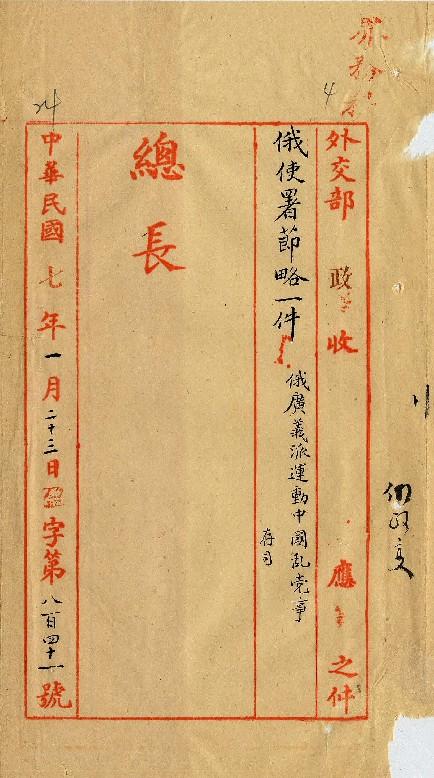 4
外交部 政 收 應 之件
俄使署節略一件
俄廣義派運動中國亂党事
存司
總長
中華民國七年一月二十三日 字第八百四十一號